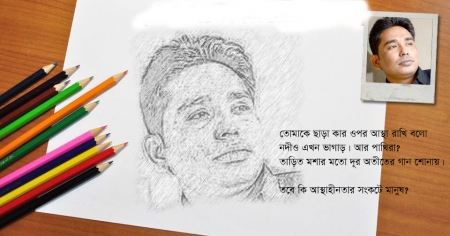 তোমাকে ছাড়া কার ওপর আস্থা রাখি বলো
নদীও এখন ভাগাড়। আর পাখিরা?
তাড়িত মশার মতো দূর অতীতের গান শোনায়।
তবে কি আস্থাহীনতার সংকটে মানুষ?